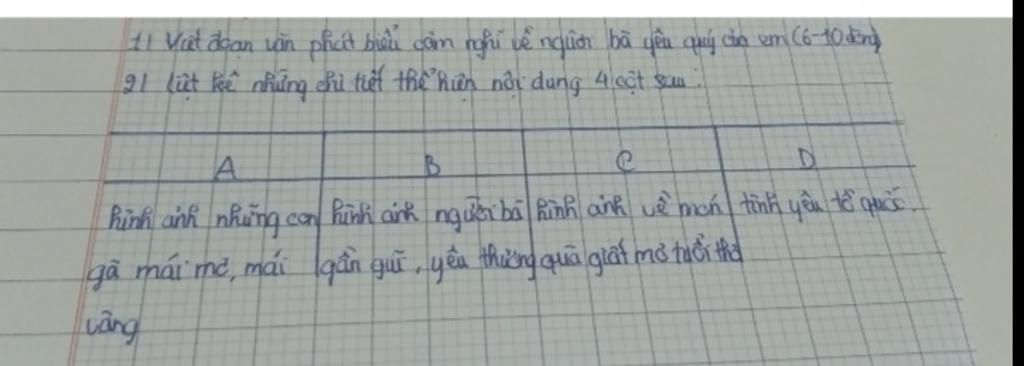 1) Viết đoạn văn phát biểu cảm nghĩ về người bà yêu quý của em (6-10 dòng)
2) liệt kê những chi tiết thể hiện nội dung 4 cột sau:
A B C D
hình ảnh những con hình ảnh người bà hình ảnh về món tình yêu tổ quốc.
gà mái mơ, mái gần gũi, yêu thương quà giất mơ tuổi thơ
vàng